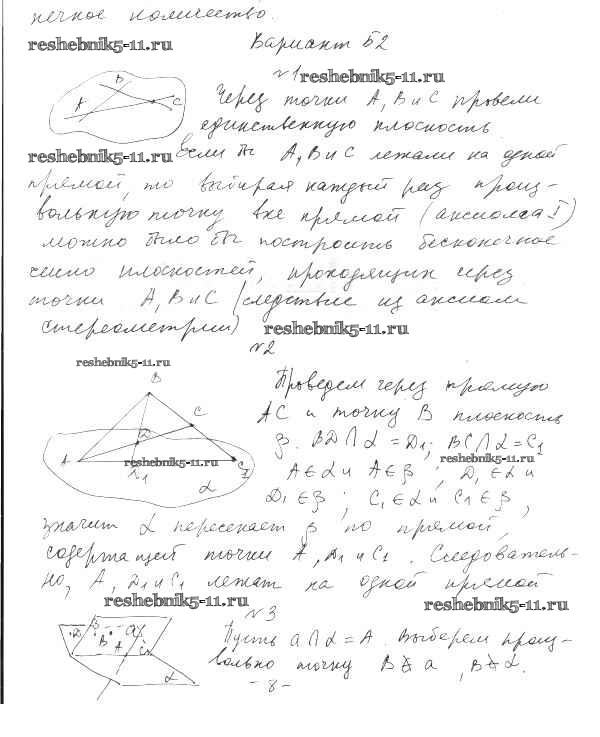 нечное количество.
reshebnik5-11.ru Вариант Б2
№1 reshebnik5-11.ru
A B C
Через точки A, B и C провели
единственную плоскость
reshebnik5-11.ru Если бы A, B и C лежали на одной
прямой, то выбирая каждый раз произ-
вольную точку вне прямой (аксиома I)
можно было бы построить бесконечное
число плоскостей, проходящих через
точки A, B и C (следствие из аксиом
стереометрии) reshebnik5-11.ru
№2
reshebnik5-11.ru
B C D A D1 C1 α
reshebnik5-11.ru
Проведем через прямую
AC и точку B плоскость
β. BD ∩ α = D1; BC ∩ α = C1
reshebnik5-11.ru
A ∈ α и A ∈ β ; D1 ∈ α и
D1 ∈ β ; C1 ∈ α и C1 ∈ β ,
значит α пересекает β по прямой,
содержащей точки A, D1 и C1. Следователь-
но, A, D1 и C1 лежат на одной прямой
reshebnik5-11.ru reshebnik5-11.ru
№3
B A a C α
Пусть a ∩ α = A. Выберем произ-
вольно точку B ∉ a , B ∉ α.
- 8 -